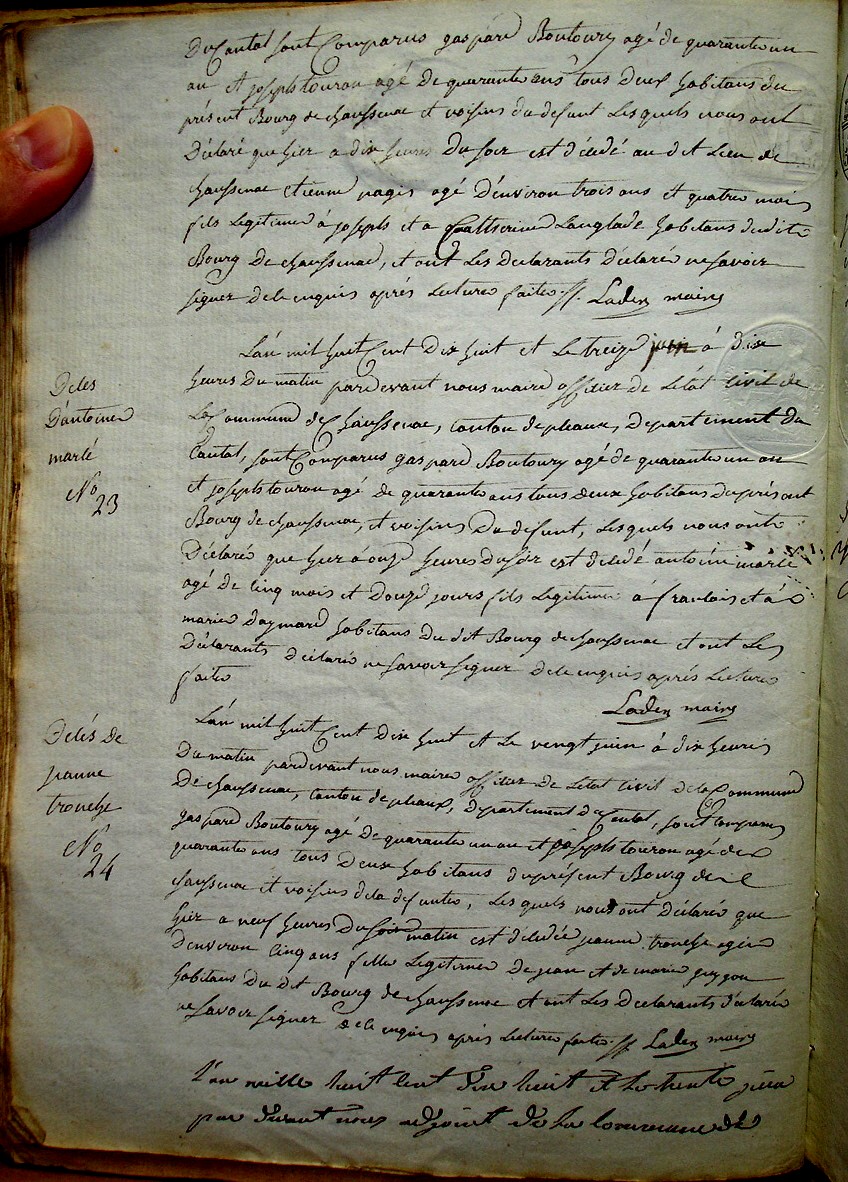 Du Cantal sont Comparus gaspard Boutoury agé de quarante un
an et joseph touron agé de quarante ans tous deux habitans du
présent Bourg de chaussenac et voisins du defunt Lesquels nous ont
Déclaré que hier a dix heures Du soir est décédé au dit Lieu de
chaussenac etienne pagis agé d'environ trois ans et quatre mois
fils Legitime à joseph et a Catherine Langlade habitans dudit
Bourg De chaussenac, et ont Les Declarants Déclaré ne savoir
signer de ce enquis après Lecture faite. Laden maire
L'an mil huit Cent Dix huit et Le treize juin à dix
heures Du matin pardevant nous maire officier de L'état Civil de
La Commune de Chaussenac, canton de pleaux, Departement du
Cantal, sont Comparus gaspard Boutoury agé de quarante un an
et joseph touron agé de quarante ans tous deux habitans du présent
Bourg de chaussenac, et voisins Du defunt, Lesquels nous ont
Déclaré que hier à onze heures Du soir est décédé antoine marlé
agé de cinq mois et Douze jours fils Legitime à francois et à
marie Daymard habitans Du dit Bourg de chaussenac et ont Les
Déclarants déclaré ne savoir signer de ce enquis après Lecture
faite
Laden maire
L'an mil huit Cent Dix huit et Le vingt juin à dix heures
Du matin pardevant nous maire officier de L'état Civil de la Commune
De chaussenac, canton de pleaux, Departement du Cantal, sont Comparus
gaspard Boutoury agé de quarante un an et joseph touron agé de
quarante ans tous Deux habitans du présent Bourg de
chaussenac et voisins de la defunte, Lesquels nous ont Déclaré que
hier a neuf heures Du soir matin est décédée jeanne tronche agée
D'environ cinq ans fille Legitime De jean et de marie
habitans Du dit Bourg de chaussenac et ont Les Declarants déclaré
ne savoir signer de ce enquis après Lecture faite. Laden maire
L'an mille huit cent dix huit et le trente juin
par devant nous adjoint de la commune de
Décès
D'antoine
marlé
No
23
Décés de
jeanne
tronche
No
24